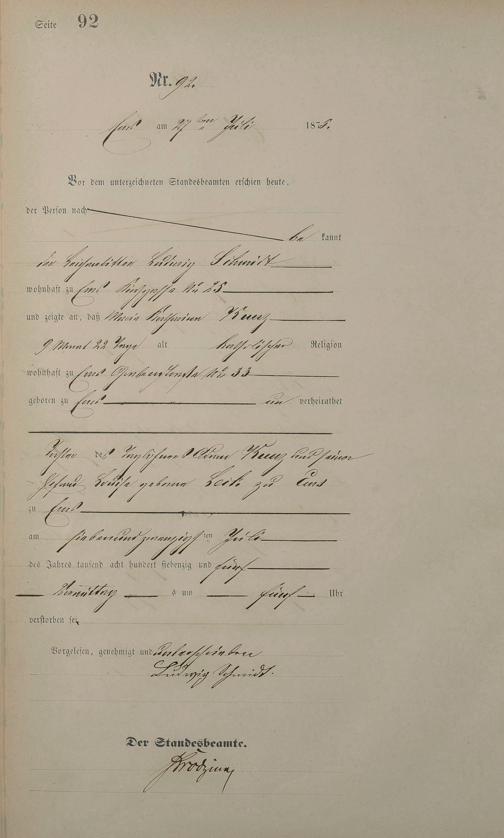 Seite 92
Nr. 92.
Ems am 27ten Juli 1875.
Vor dem unterzeichneten Standesbeamten erschien heute,
der Person nach
be kannt
der Ludwig Schmidt
wohnhaft zu Ems No 25
und zeigte an, daß Maria Kunz
9 Monat 22 Tage alt katholischer Religion
wohnhaft zu Ems No 33
geboren zu Ems un verheirathet
Tochter des Taglöhners Kunz und seiner
Ehefrau Louise geborene zu Ems
zu Ems
am siebenundzwanzigsten Juli
des Jahres tausend acht hundert siebenzig und fünf
Vormittag s um fünf Uhr
verstorben sei.
Vorgelesen, genehmigt und unterschrieben
Ludwig Schmidt.
Der Standesbeamte.